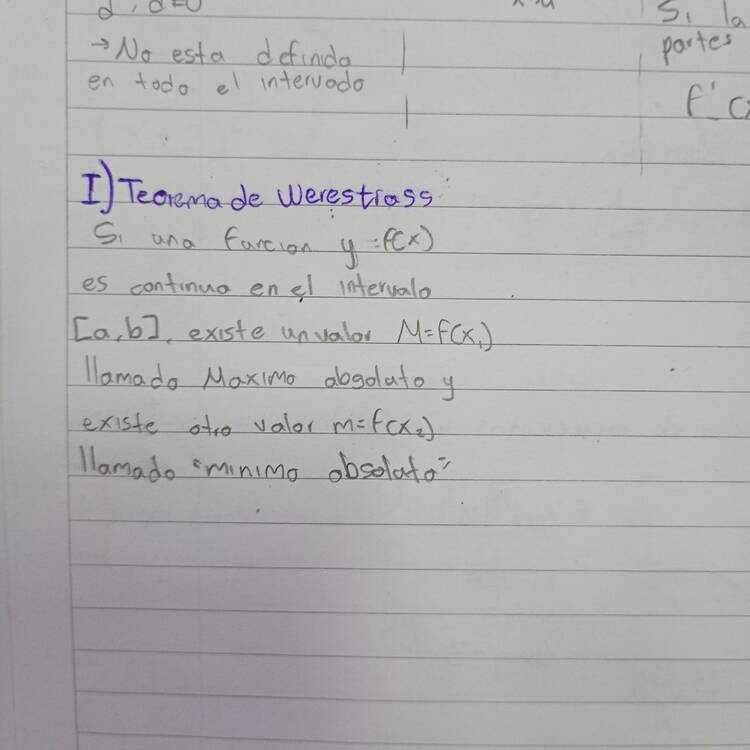 d, d=0
Si la
→No esta definida
partes
en todo el intervado
f'(x
I) Teorema de Werestrass
Si una funcion y=f(x)
es continua en el intervalo
[a,b], existe un valor M=f(x₁)
llamado Maximo absoluto y
existe otro valor m=f(x₂)
llamado "minimo absoluto"